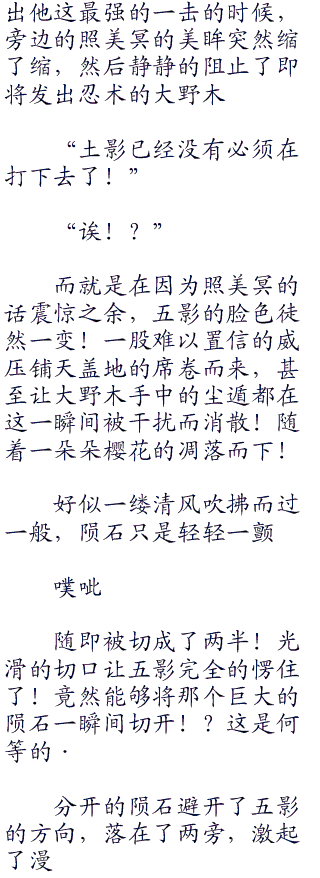 出他这最强的一击的时候，
旁边的照美冥的美眸突然缩
了缩，然后静静的阻止了即
将发出忍术的大野木
“土影已经没有必须在
打下去了！”
“诶！？”
而就是在因为照美冥的
话震惊之余，五影的脸色徒
然一变！一股难以置信的威
压铺天盖地的席卷而来，甚
至让大野木手中的尘遁都在
这一瞬间被干扰而消散！随
着一朵朵樱花的凋落而下！
好似一缕清风吹拂而过
一般，陨石只是轻轻一颤
噗呲
随即被切成了两半！光
滑的切口让五影完全的愣住
了！竟然能够将那个巨大的
陨石一瞬间切开！？这是何
等的·
分开的陨石避开了五影
的方向，落在了两旁，激起
了漫